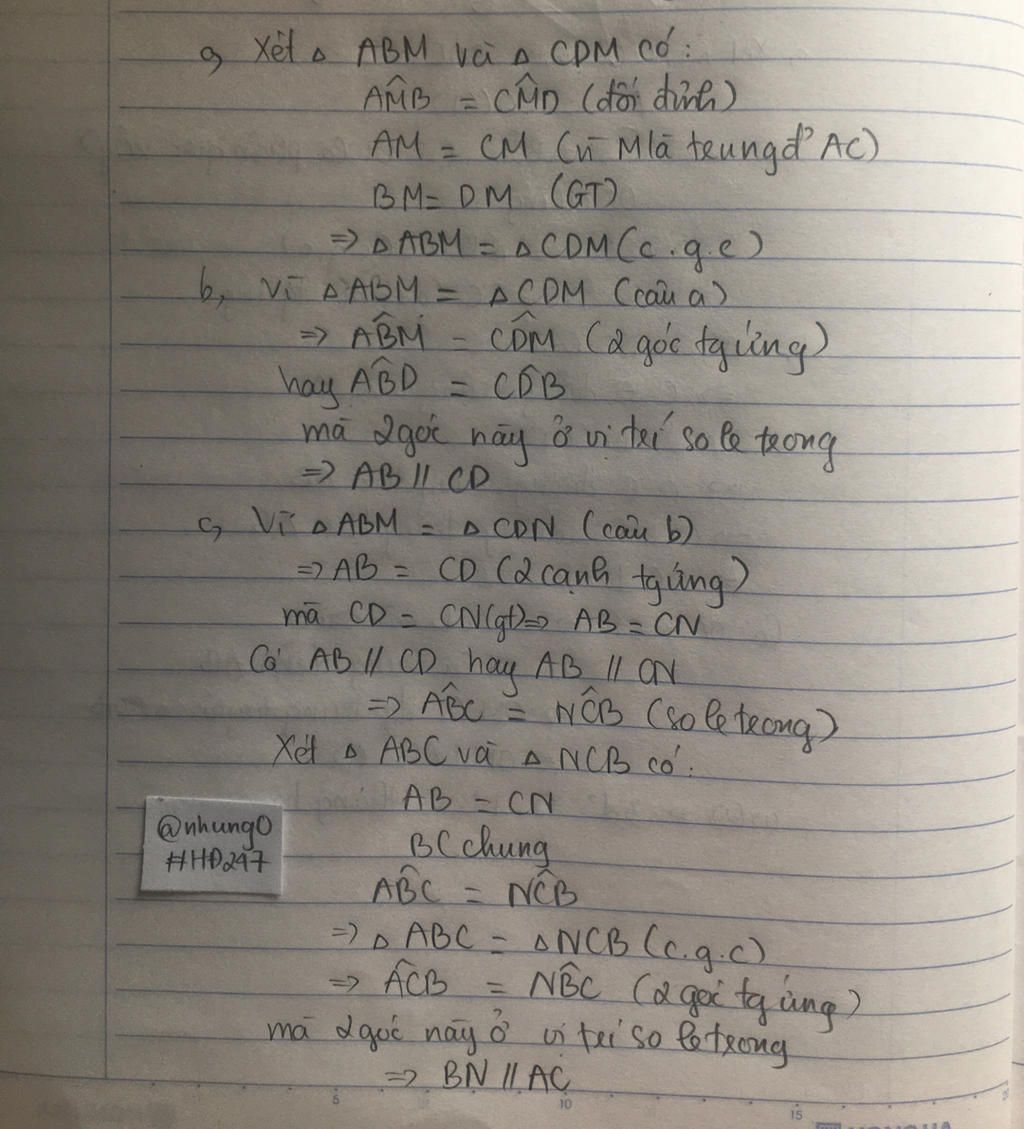 a, Xét △ ABM và △ CDM có:
AM̂B = CM̂D (đối đỉnh)
AM = CM (vì M là trung đ' AC)
BM = DM (GT)
=> △ ABM = △ CDM (c.g.c)
b, Vì △ ABM = △ CDM (câu a)
=> AB̂M = CD̂M (2 góc tg ứng)
hay AB̂D = CD̂B
mà 2 góc này ở vị trí so le trong
=> AB // CD
c, Vì △ ABM = △ CDN (câu b)
=> AB = CD (2 cạnh tg ứng)
mà CD = CN (gt) => AB = CN
Có AB // CD hay AB // CN
=> AB̂C = NĈB (so le trong)
Xét △ ABC và △ NCB có:
AB = CN
@nhung0
#HĐ247
BC chung
AB̂C = NĈB
=> △ ABC = △ NCB (c.g.c)
=> AĈB = NB̂C (2 góc tg ứng)
mà 2 góc này ở vị trí so le trong
=> BN // AC
5 10 15